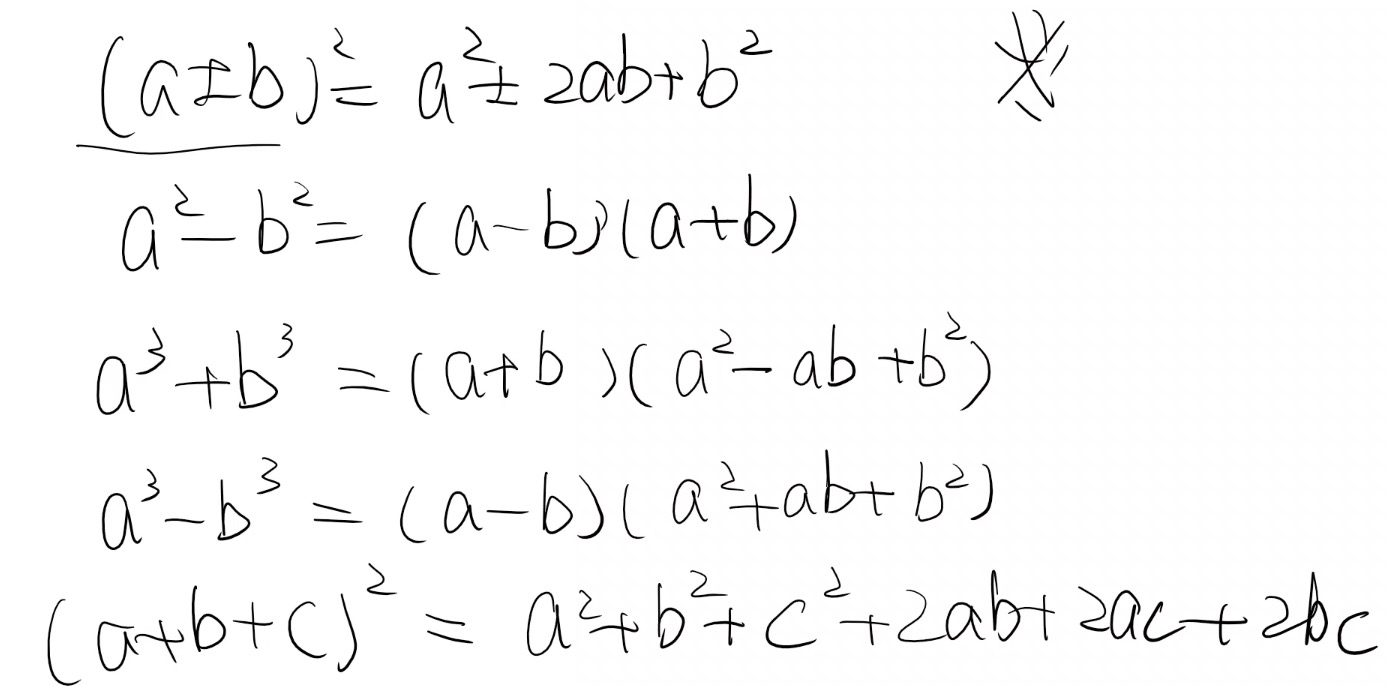 (a±b)² = a² ± 2ab + b²
a² − b² = (a−b)(a+b)
a³ + b³ = (a+b)(a² − ab + b²)
a³ − b³ = (a−b)(a² + ab + b²)
(a+b+c)² = a² + b² + c² + 2ab + 2ac + 2bc